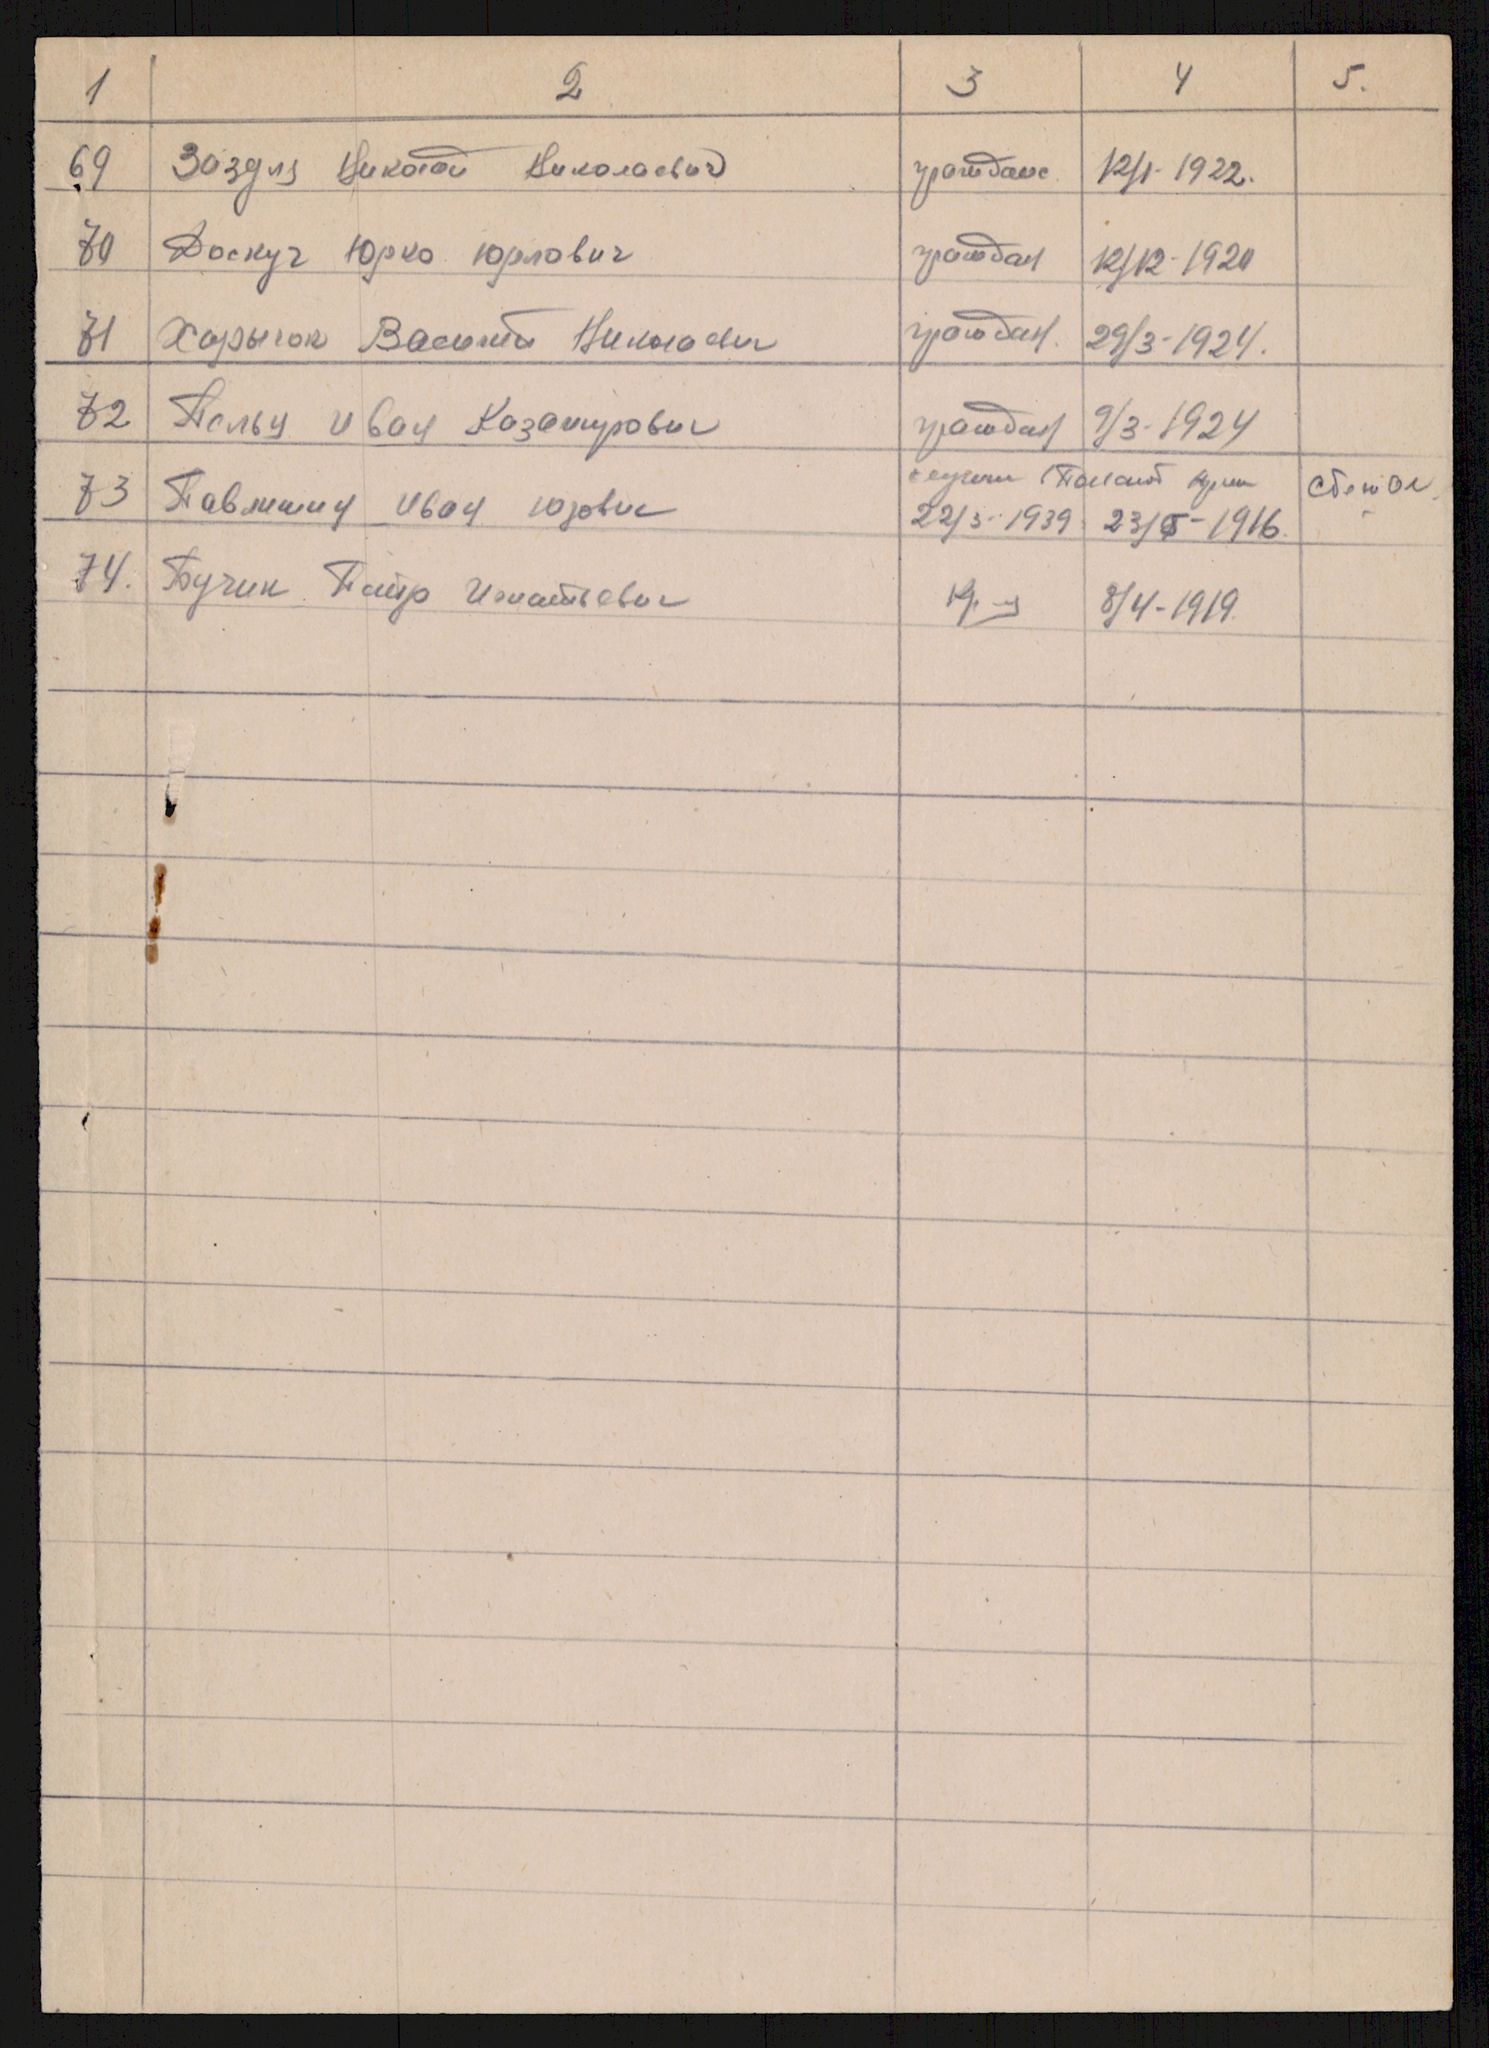 1 2 3 4 5.
69 Заздля Николай Николаевич граждане 12/I-1922.
70 Доскуч Юрко Юрлович граждан 12/12-1920
71 Харычок Василий Николаевич граждан. 29/3-1924.
72 Пельц Иван Казамирович граждан 9/3-1924
73 Павлишин Иван Юрович Польской Армии сбежал.
22/3-1939 23/5-1916.
74. Бучик Петр Игнатьевич 8/4-1919.